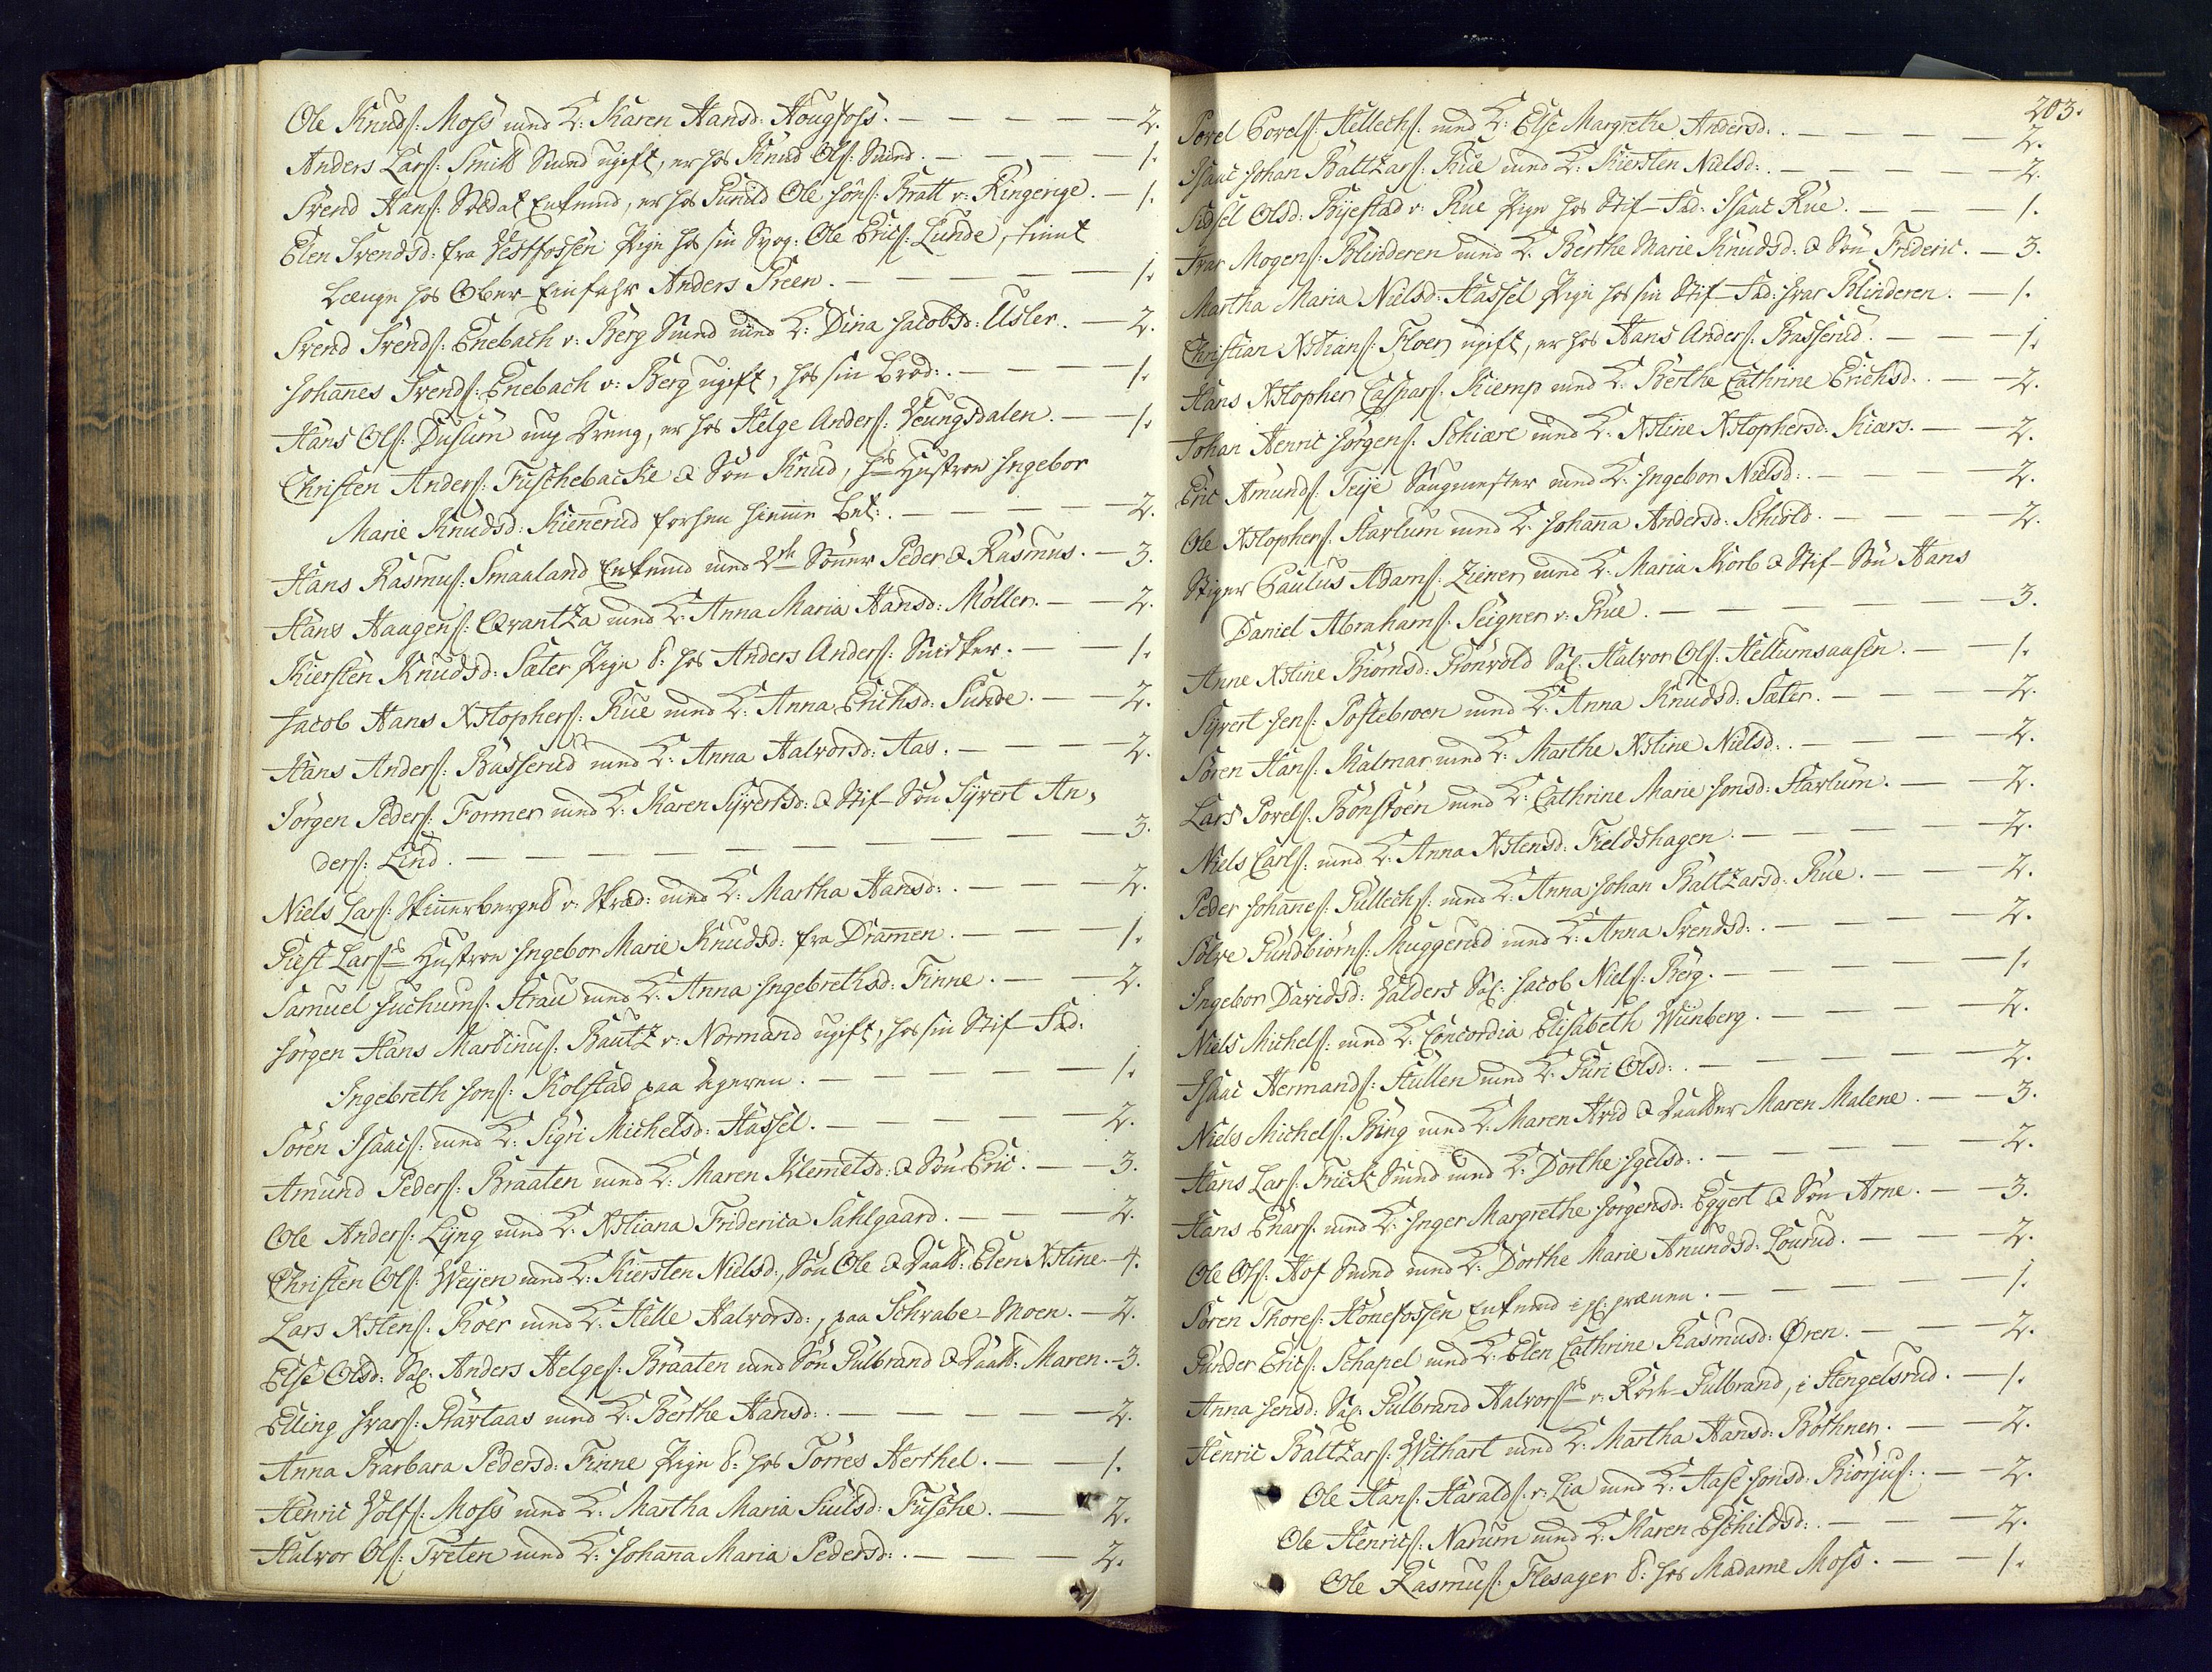 Ole Knuds: Moss med K: Karen Hansd: Hougfoss. — 2.
Anders Lars: Smitt Smed ugift, er hos Knud Ols: Smed. — 1.
Svend Hans: Soldat Enkemd, er hos Gunild Ole Søns: Bratt v: Ringerige. — 1.
Elen Svendsd: fra Vestfossen Pige hos sin Svog: Ole Erics: Lunde, tient
længe hos Ober-Einfahr Anders Steen. — 1.
Svend Svends: Enebach v: Berg Smed med K: Dina Jacobsd: Usler. — 2.
Johannes Svends: Enebach v: Berg ugift, hos sin Brod:. — 1.
Hans Ols: Dusum ung Dreng, er hos Helge Anders: Veungsdalen. — 1.
Christen Anders: Fuschebache & Søn Knud, hs Hustroe Ingebor
Marie Knudsd: Kiennerud forhen hiemme Bet:. — 2.
Hans Rasmus: Smaaland Enkemd med 2de Sønner Peder & Rasmus. — 3.
Hans Haagens: Qvantza med K: Anna Maria Hansd: Møller. — 2.
Kiersten Knudsd: Sæter Pige 8: hos Anders Anders: Snidker. — 1.
Jacob Hans Xstophers: Rue med K: Anna Erichsd: Sunde. — 2.
Hans Anders: Basserud med K: Anna Halvorsd: Aas. — 2.
Jørgen Peders: Former med K: Karen Syvertsd: & Stif-Søn Syvert An-
ders: Lind. — 3.
Niels Lars: Skinnerberget v: Skræd: med K: Martha Hansd:. — 2.
Giest Lars: Hustroe Ingebor Marie Knudsd: fra Drammen. — 1.
Samuel Juchums: Strau med K: Anna Ingebrethsd: Finne. — 2.
Jørgen Hans Martinus: Bautz v: Normand ugift, hos sin Stif-Fad:
Ingebreth Jons: Kolstad paa Ageren. — 1.
Søren Isaacs: med K: Sigri Michelsd: Hassel. — 2.
Amund Peders: Braaten med K: Maren Klemetsd: & Søn Eric. — 3.
Ole Anders: Lyng med K: Xstiana Friderica Sahlgaard. — 2.
Christen Ols: Weyen med K: Kiersten Nielsd:, Søn Ole & Daatt: Elen Xstine. — 4.
Lars Xstens: Roer med K: Helle Halvorsd:, paa Schrabe-Moen. — 2.
Else Olsd: Sal: Anders Helges: Braaten med Søn Gulbrand & Daatt: Maren. — 3.
Elling Ivars: Stavtaas med K: Berthe Hansd:. — 2.
Anna Barbara Pedersd: Finne Pige 8: hos Torres Herthel. — 1.
Henric Wolfs: Moss med K: Martha Maria Juulsd: Fusche. — 2.
Halvor Ols: Treten med K: Johanna Maria Pedersd:. — 2.
203.
Povel Povels: Hellechs: med K: Else Margrethe Andersd:. — 2.
Isaac Johan Baltzars: Rue med K: Kiersten Nielsd:. — 2.
Sidsel Olsd: Byestad v: Rue Pige hos Stif-Fad: Isaac Rue. — 1.
Ivar Mogens: Blinderen med K: Berthe Marie Knudsd: & Søn Frideric. — 3.
Martha Maria Nielsd: Hassel Pige hos sin Stif-Fad: Ivar Blinderen. — 1.
Christian Xstians: Floer ugift, er hos Hans Anders: Basserud. — 1.
Hans Xstopher Caspars: Kiemp med K: Berthe Cathrine Erichsd:. — 2.
Johan Henric Jørgens: Schiære med K: Xstine Xstophersd: Kiærs. — 2.
Eric Amunds: Teije Saugmester med K: Ingebor Nielsd:. — 2.
Ole Xstophers: Starlum med K: Johanna Andersd: Schiold. — 2.
Stiger Paulus Adams: Ziener med K: Maria Korb & Stif-Søn Hans
Daniel Abrahams: Seigner v: Rue. — 3.
Anne Xstine Biørnsd: Bronvold Sal: Halvor Ols: Hellumsaasen. — 1.
Syvert Jens: Postebroen med K: Anna Knudsd: Sæter. — 2.
Søren Hans: Kalmar med K: Marthe Xstine Nielsd:. — 2.
Lars Povels: Bonstøen med K: Cathrine Marie Jonsd: Starlum. — 2.
Niels Carls: med K: Anna Xstensd: Fieldshagen. — 2.
Peder Johannes: Gullechs: med K: Anna Johan Baltzarsd: Rue. — 2.
Sølve Gundbiørns: Muggerud med K: Anna Svendsd:. — 2.
Ingebor Davidsd: Valders Sal: Jacob Niels: Berg. — 1.
Niels Michels: med K: Concordia Elisabeth Wünberg. — 2.
Isaac Hermands: Hullen med K: Guri Olsd:. — 2.
Niels Michels: Bing med K: Maren Arid & Daatter Maren Malene. — 3.
Hans Lars: Frick Smed med K: Dorthe Igelsd:. — 2.
Hans Enars: med K: Inger Margrethe Jørgensd: Eggert & Søn Arne. — 3.
Ole Ols: Hof Smed med K: Dorthe Marie Anundsd: Lourud. — 2.
Søren Thores: Hønefossen Enkemd i gl: grænnen. — 1.
Gunder Erics: Schapel med K: Elen Cathrine Rasmusd: Øren. — 2.
Anna Jensd: Sal: Gulbrand Halvors: v: Rørh-Gulbrand, i Stengelsrud. — 1.
Henric Baltzars: Withart med K: Martha Hansd: Bothner. — 2.
Ole Hans: Haralds: v: Lia med K: Aase Jonsd: Biørjus:. — 2.
Ole Henrics: Narum med K: Karen Eschildsd:. — 2.
Ole Rasmus: Flesager 8: hos Madame Moss. — 1.